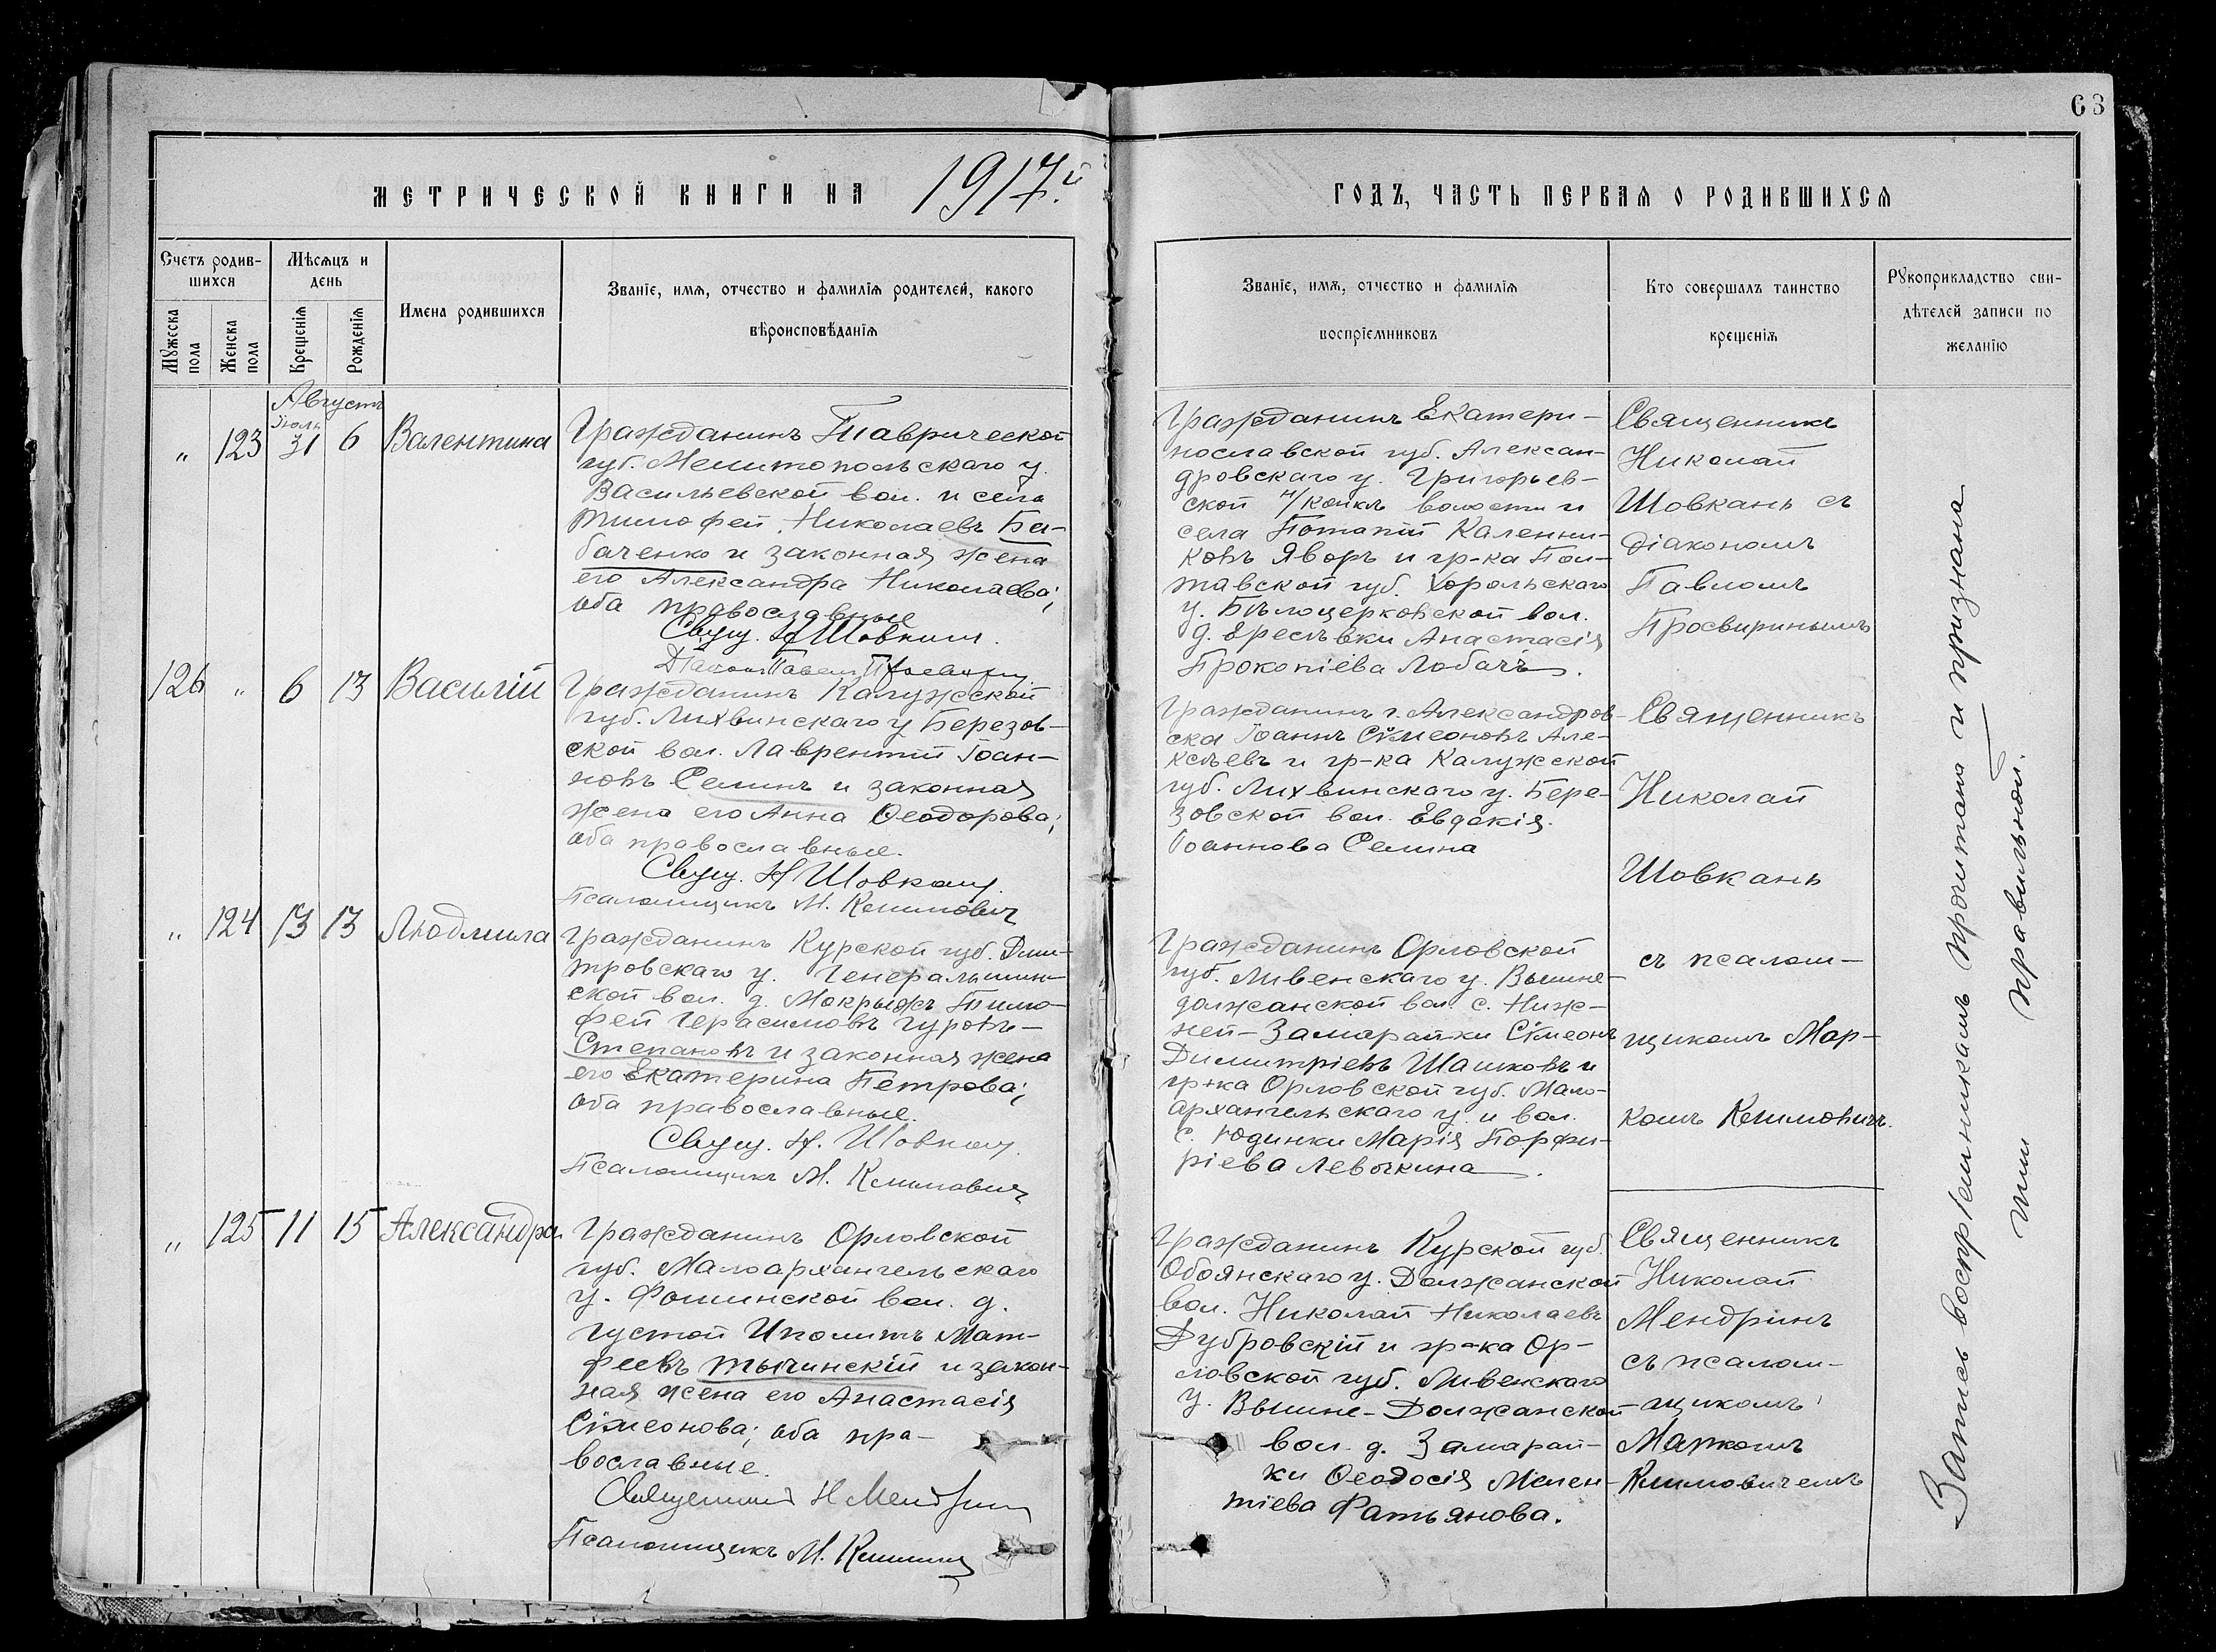 63
МЕТРИЧЕСКОЙ КНИГИ НА 1917й
ГОДЪ, ЧАСТЬ ПЕРВАЯ О РОДИВШИХСЯ
Счетъ родив-
шихся
Мѣсяцъ и
день
Мужеска
пола
Женска
пола
Крещенія
Рожденія
Имена родившихся
Званіе, имя, отчество и фамилія родителей, какого
вѣроисповѣданія
Званіе, имя, отчество и фамилія
воспріемниковъ
Кто совершалъ таинство
крещенія
Рукоприкладство сви-
дѣтелей записи по
желанію
Августъ
Іюль
„ 123 31 6 Валентина
Гражданинъ Таврической
губ. Мелитопольскаго у.
Васильевской вол. и села
Тимофей Николаевъ Ба-
баченко и законная жена
его Александра Николаева;
оба православные
Свящ. Н Шовкань.
Діаконъ Павелъ
Гражданинъ Екатери-
нославской губ. Алексан-
дровскаго у. Григорьев-
ской волости и
села Потапій Каленни-
ковъ Яворъ и гр-ка Пол-
тавской губ. Хорольскаго
у. Бѣлоцерковской вол.
д. Ереслевки Анастасія
Прокопіева Лобачъ.
Священникъ
Николай
Шовкань съ
діакономъ
Павломъ
Просвиринымъ
126 „ 6 13 Василій
Гражданинъ Калужской
губ. Лихвинскаго у Березов-
ской вол. Лаврентій Іоан-
новъ Селинъ и законная
жена его Анна Ѳеодорова;
оба православные.
Свящ. Н Шовкань.
Псаломщикъ М. Климович
Гражданинъ г. Александров-
ска Іоаннъ Сѵмеоновъ Але-
ксѣевъ и гр-ка Калужской
губ. Лихвинскаго у. Бере-
зовской вол. Евдокія
Іоаннова Селина
Священникъ
Николай
Шовкань
съ псалом-
щикомъ Мар-
комъ Климовичъ.
„ 124 13 13 Людмила
Гражданинъ Курской губ. Дми-
тровскаго у. Генеральшин-
ской вол. д. Мокрыжъ Тимо-
фей Герасимовъ Гуровъ-
Степановъ и законная жена
его Екатерина Петрова;
оба православные.
Свящ. Н. Шовкань.
Псаломщикъ М. Климович
Гражданинъ Орловской
губ. Ливенскаго у. Вышне-
должанской вол. с. Ниж-
ней-Замарайки Сѵмеонъ
Димитріевъ Шашковъ и
гр-ка Орловской губ. Мало-
архангельскаго у. и вол.
с. Юдинки Марія Порфи-
ріева Левочкина.
„ 125 11 15 Александра
Гражданинъ Орловской
губ. Малоархангельскаго
у. Фошинской вол. д.
Густой Иполитъ Мат-
феевъ Тычинскій и закон-
ная жена его Анастасія
Сѵмеонова; оба пра-
вославные.
Священникъ Н Мендринъ
Псаломщикъ М. Климович
Гражданинъ Курской губ.
Обоянскаго у. Должанской
вол. Николай Николаевъ
Дубровскій и гр-ка Ор-
ловской губ. Ливенскаго
у. Вышне-Должанской
вол. д. Замарай-
ки Ѳеодосія Мелен-
тіева Фатьянова.
Священникъ
Николай
Мендринъ
съ псалом-
щикомъ
Маркомъ
Климовичемъ
Запись воспріемникамъ прочитана и признана
ими правильной.